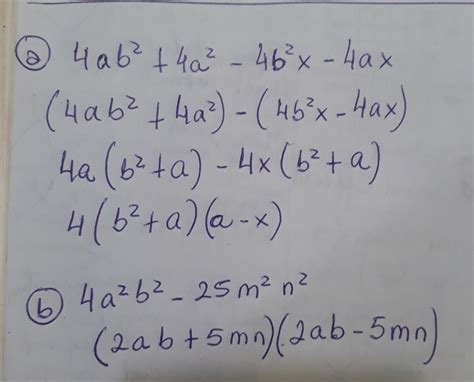 a) 4ab² + 4a² - 4b²x - 4ax
(4ab² + 4a²) - (4b²x - 4ax)
4a(b² + a) - 4x(b² + a)
4(b² + a)(a - x)
b) 4a²b² - 25m²n²
(2ab + 5mn)(2ab - 5mn)